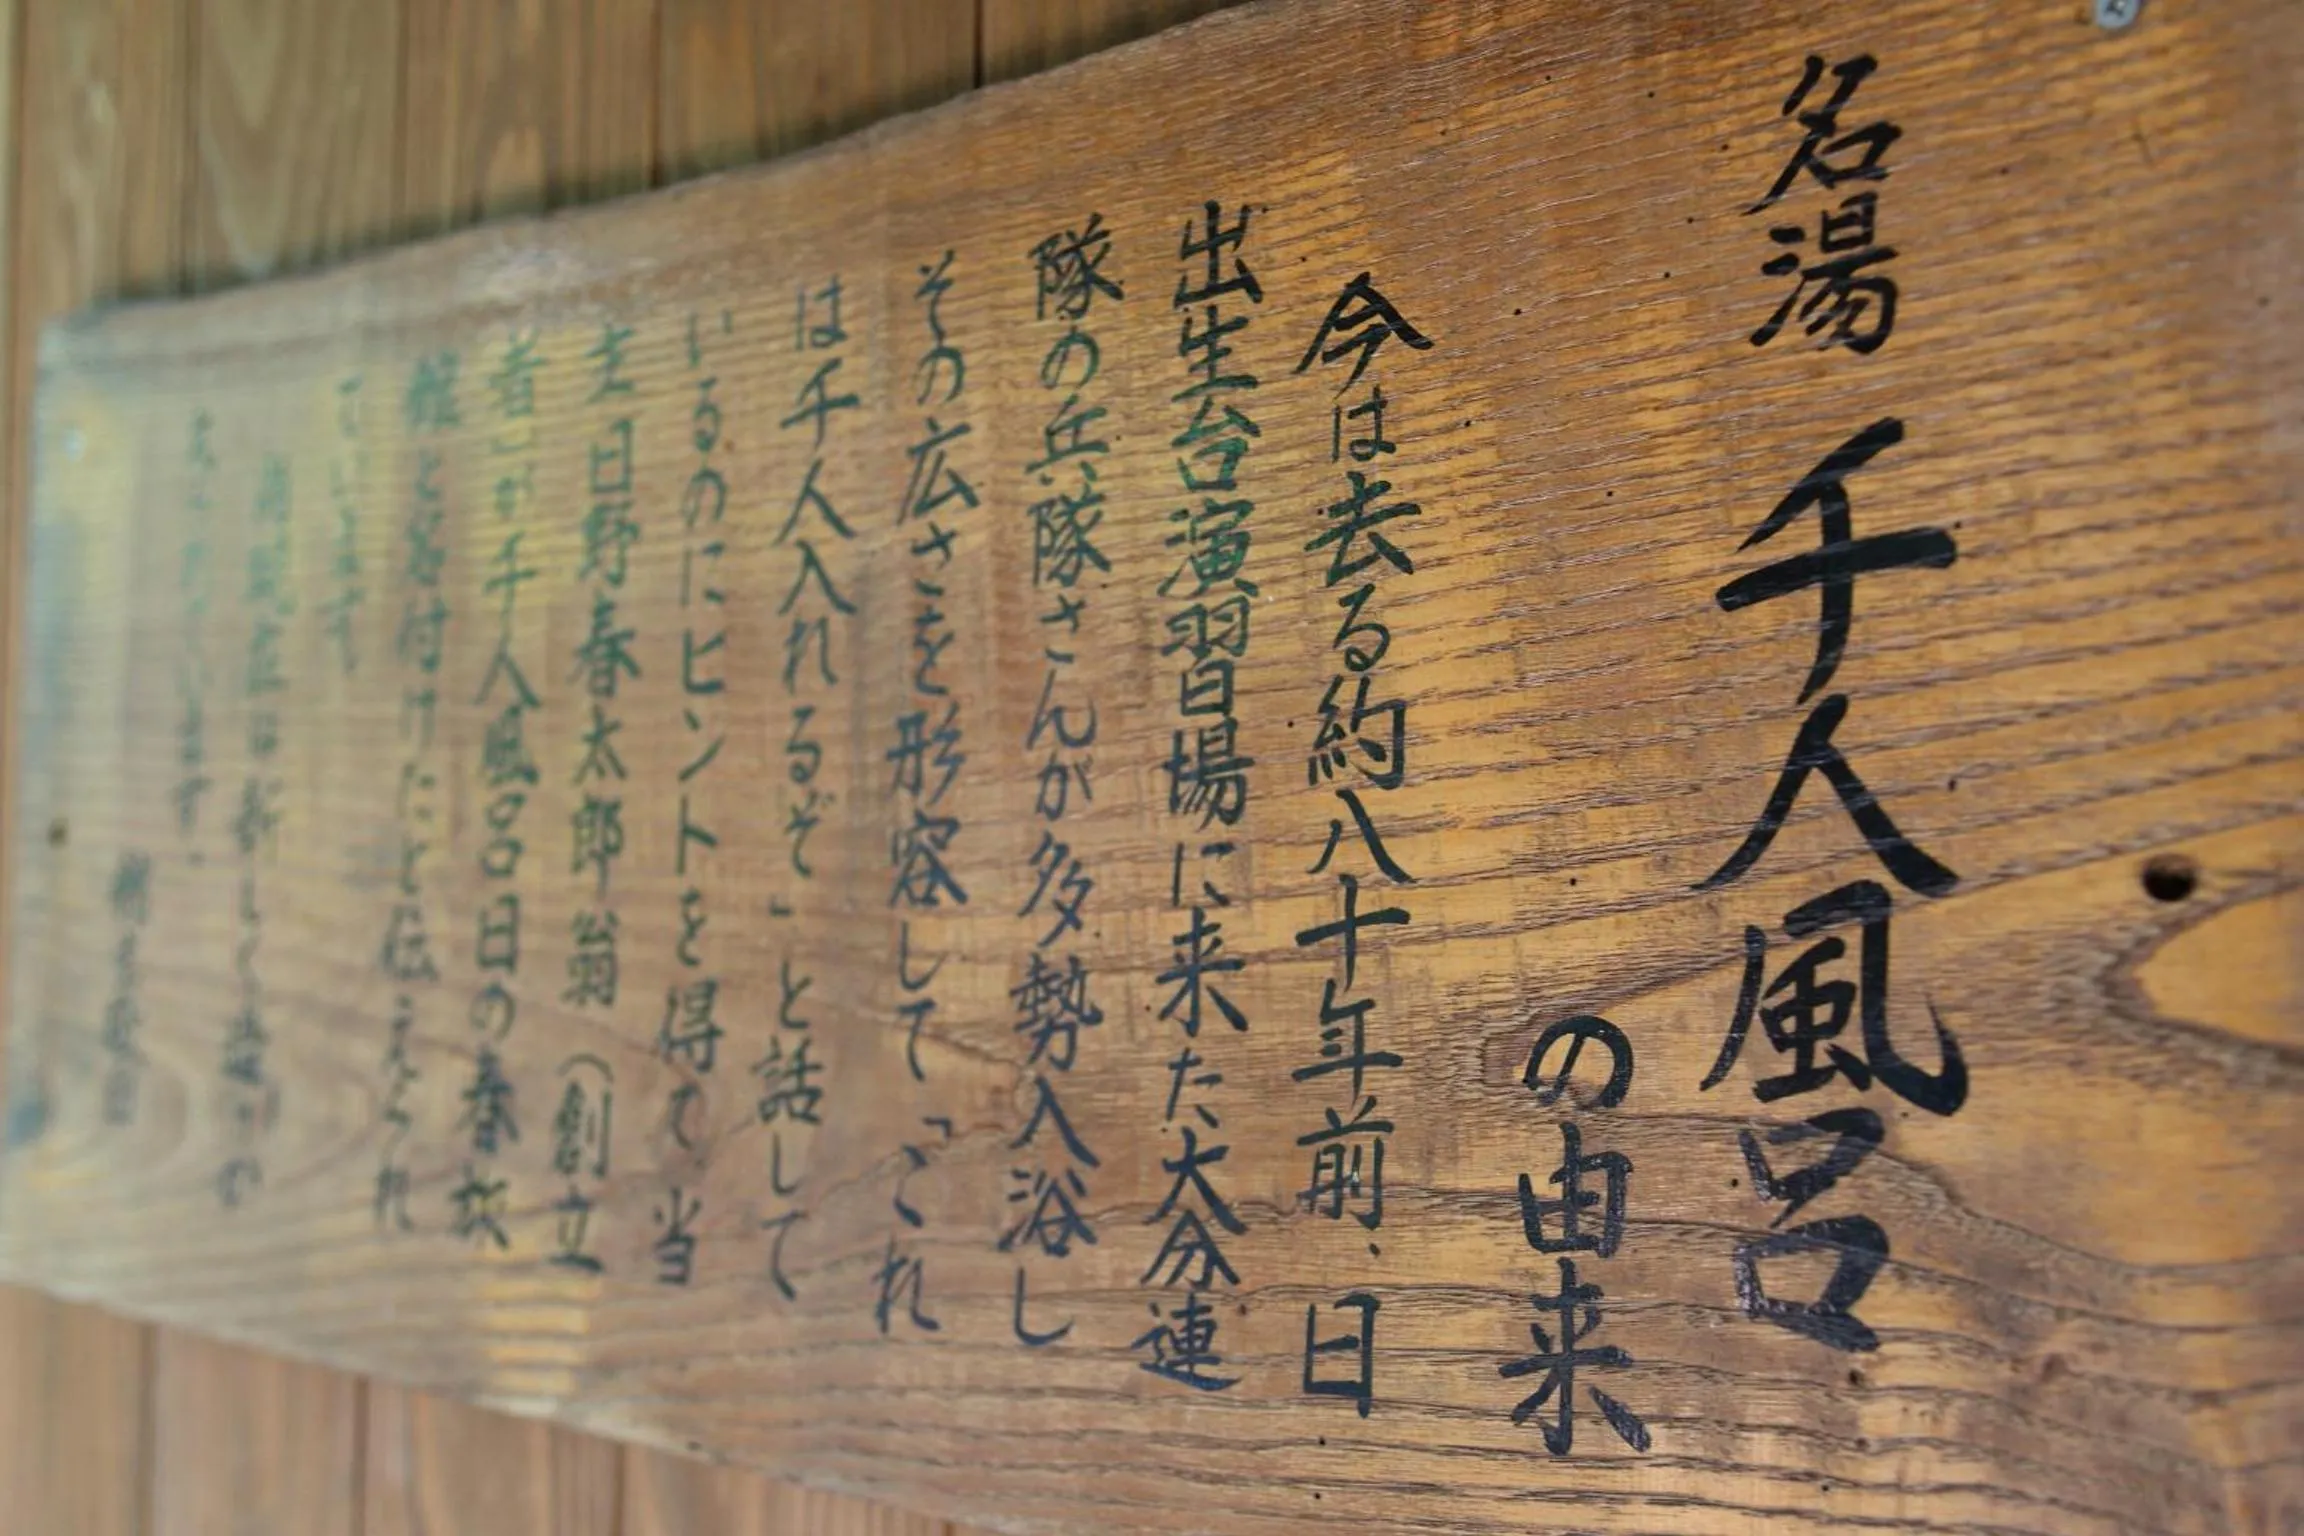 名湯 千人風呂
の由来
今は去る約八十年前、日
出生台演習場に来た大分連
隊の兵隊さんが多勢入浴し
その広さを形容して「これ
は千人入れるぞ」と話して
いるのにヒントを得て、当
主日野春太郎翁（創立
者）が千人風呂日の春旅
館と名付けたと伝えられ
ています